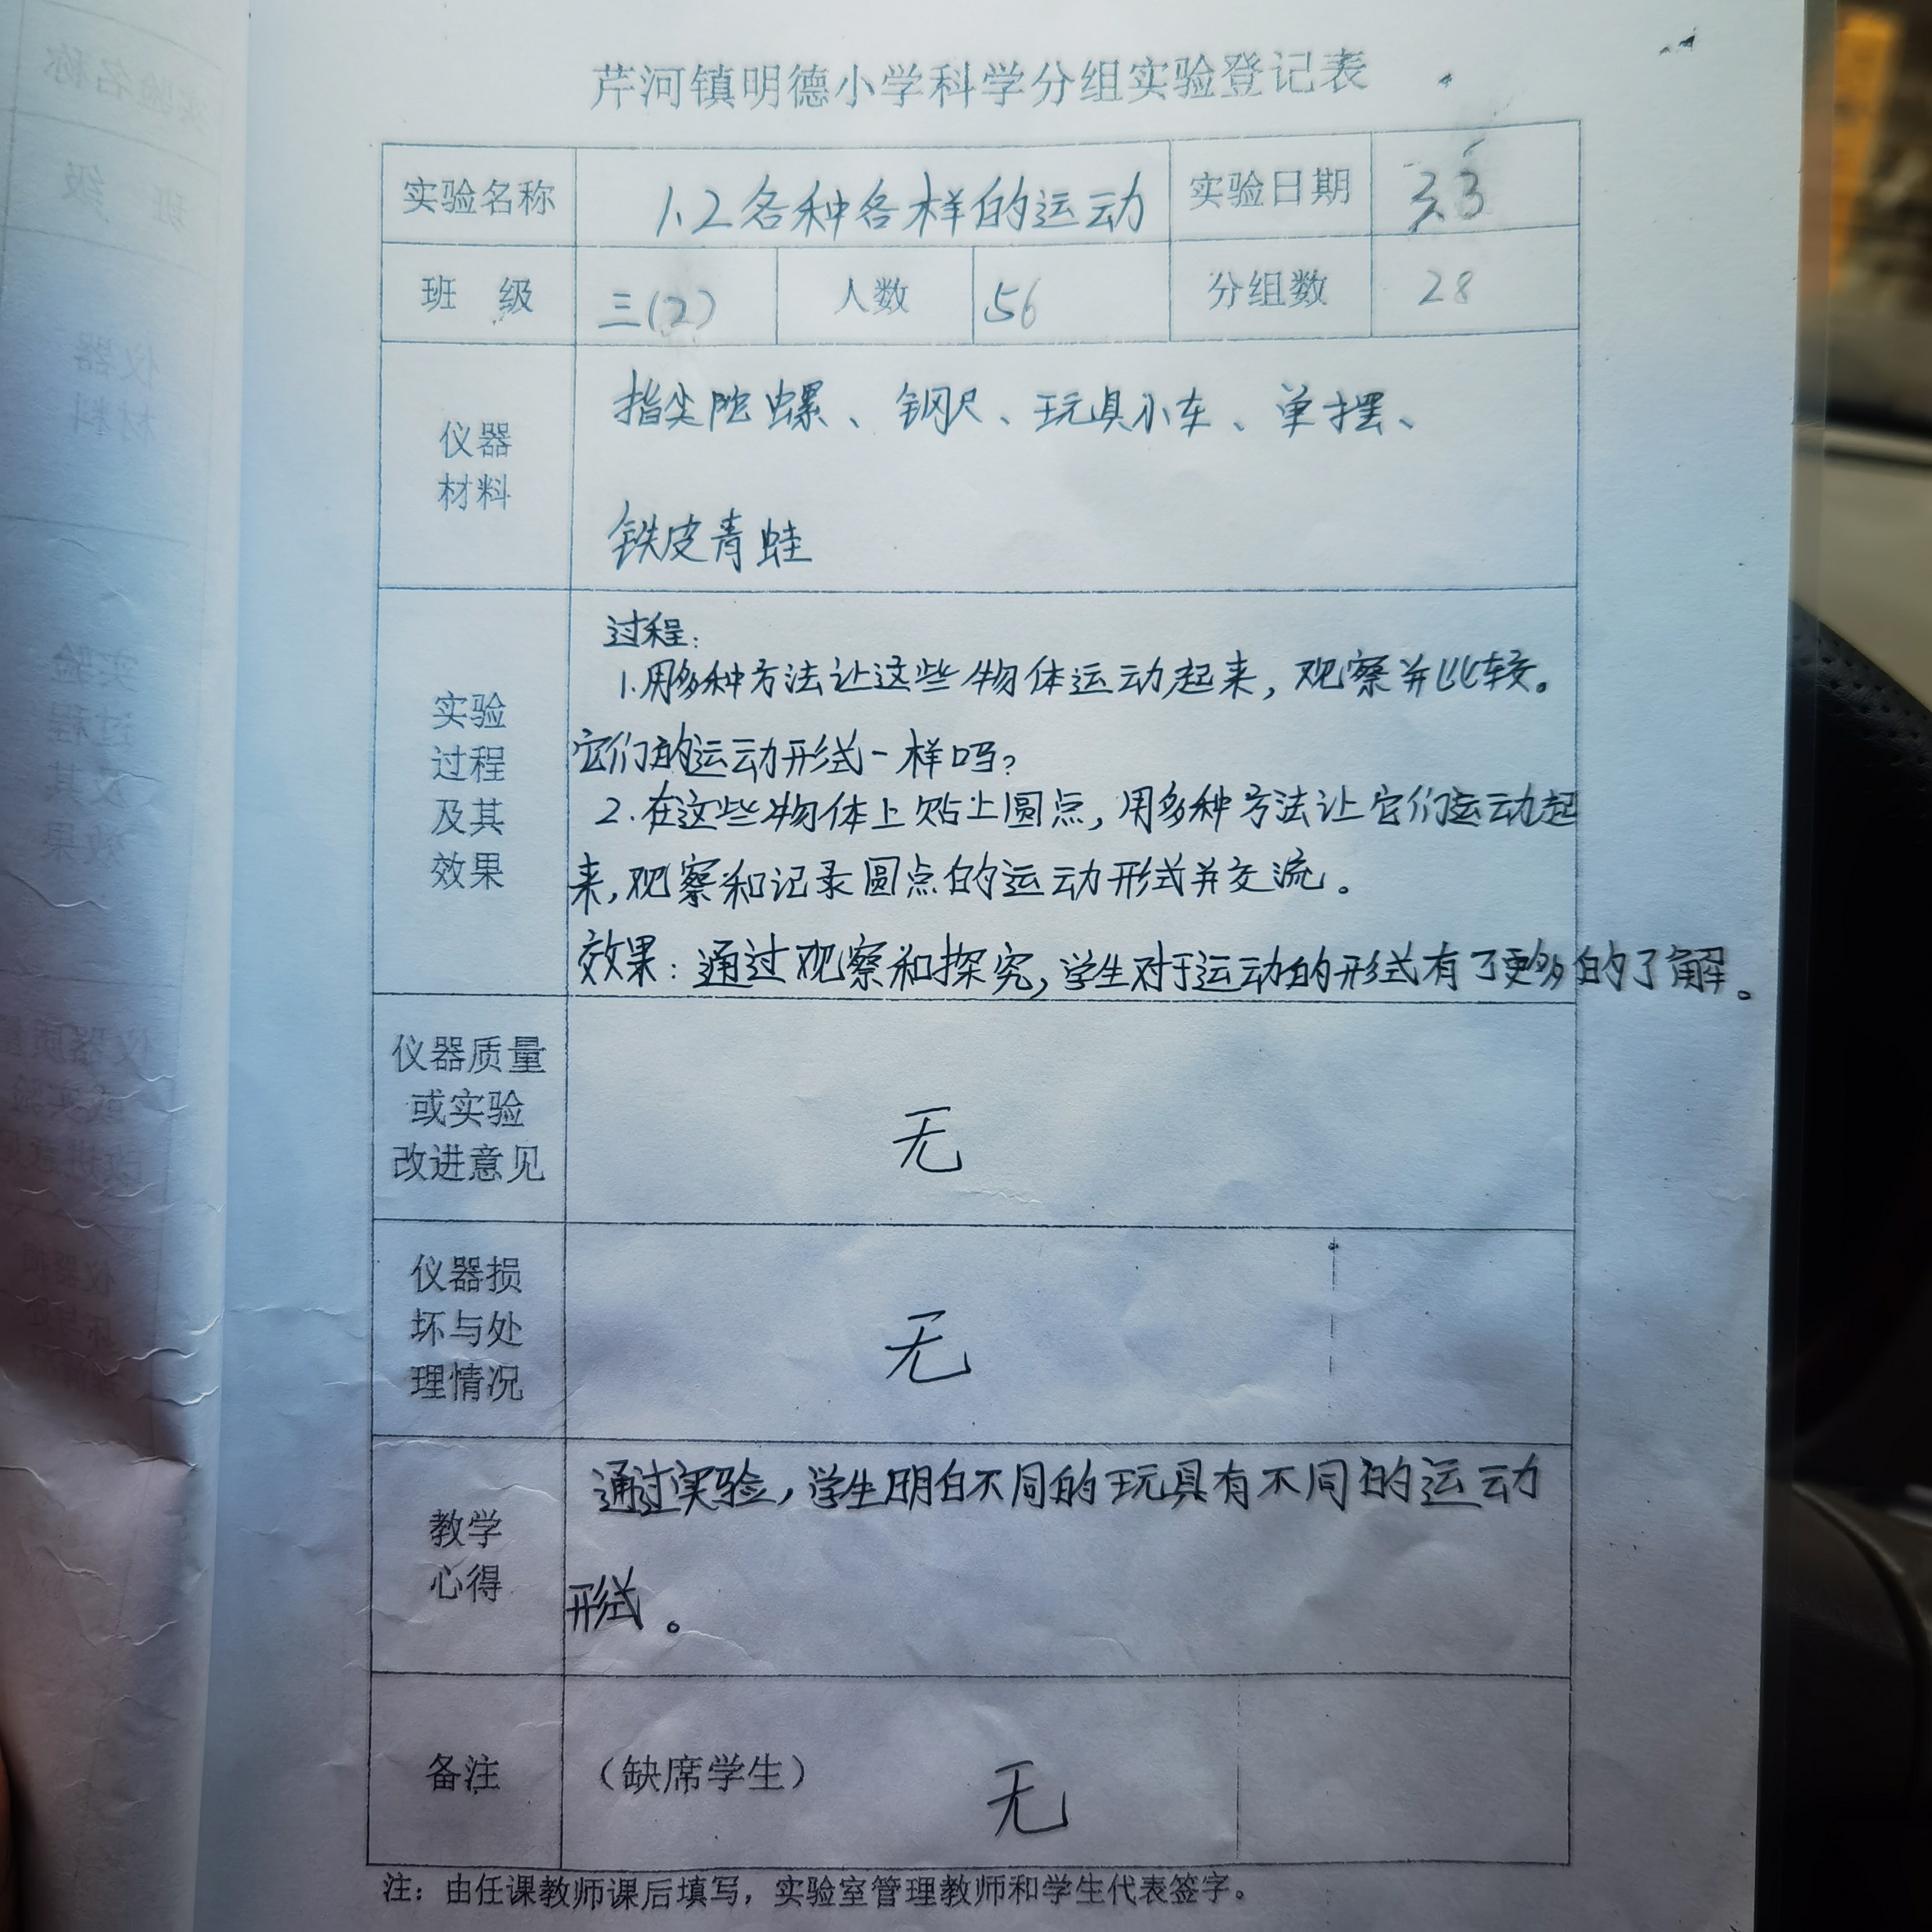 芹河镇明德小学科学分组实验登记表
实验名称 1.2各种各样的运动 实验日期 3.3
班 级 三(2) 人数 56 分组数 28
仪器
材料
指尖陀螺、钢尺、玩具小车、单摆、
铁皮青蛙
实验
过程
及其
效果
过程:
1.用多种方法让这些物体运动起来,观察并比较。
它们的运动形式一样吗?
2.在这些物体上贴上圆点,用多种方法让它们运动起
来,观察和记录圆点的运动形式并交流。
效果:通过观察和探究,学生对于运动的形式有了更多的了解。
仪器质量
或实验
改进意见
无
仪器损
坏与处
理情况
无
教学
心得
通过实验,学生明白不同的玩具有不同的运动
形式。
备注 (缺席学生) 无
注:由任课教师课后填写,实验室管理教师和学生代表签字。